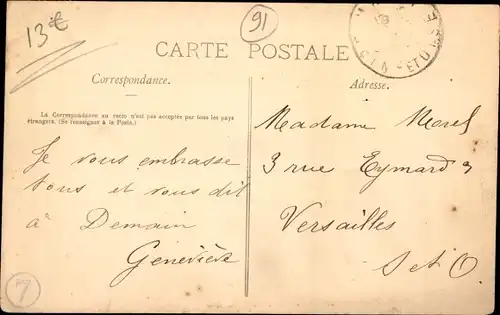 13€
91
CARTE POSTALE
Correspondance.
La Correspondance au recto n'est pas acceptée par tous les pays
étrangers. (Se renseigner à la Poste.)
Je vous embrasse
tous et vous dit
à Demain
Geneviève
Adresse.
Madame Morel
3 rue Eymard
Versailles
S et O
ET O